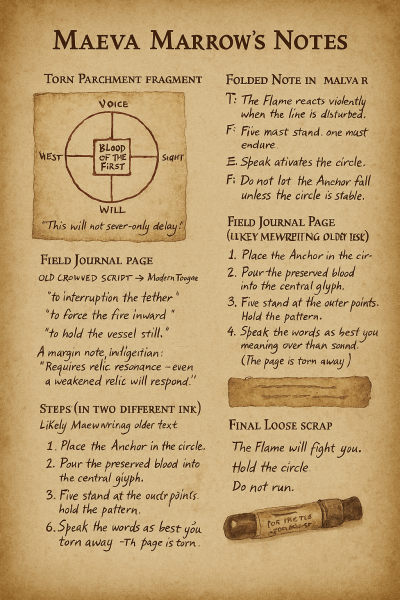 MAEVA MARROW'S NOTES
TORN PARCHMENT FRAGMENT
VOICE
WEST
BLOOD
OF THE
FIRST
SIGHT
WILL
"This will not sever-only delay!"
FIELD JOURNAL PAGE
OLD CROWED SCRIPT → Modern Tongue
"to interruption the tether"
"to force the fire inward"
"to hold the vessel still."
A margin note,
"Requires relic resonance - even
a weakened relic will respond."
STEPS (IN TWO DIFFERENT INK)
Likely older text
1. Place the Anchor in the circle.
2. Pour the preserved blood into
the central glyph.
3. Five stand at the points.
hold the pattern.
6. Speak the words as best you
torn away -Th page is torn.
FOLDED NOTE IN MALVAR
T: The Flame reacts violently
when the line is disturbed.
F: Five mast stand. one must
endure
E. Speak ativates the circle.
F: Do not lot the Anchor fall
unless the circle is stable.
FIELD JOURNAL PAGE
1. Place the Anchor in the cir-
2. Pour the preserved blood
into the central glyph.
3. Five stand at the outer points.
Hold the pattern.
4. Speak the words as best you
meaning over than sound.
(The page is torn away)
FINAL LOOSE SCRAP
The Flame will fight you.
Hold the circle
Do not run.